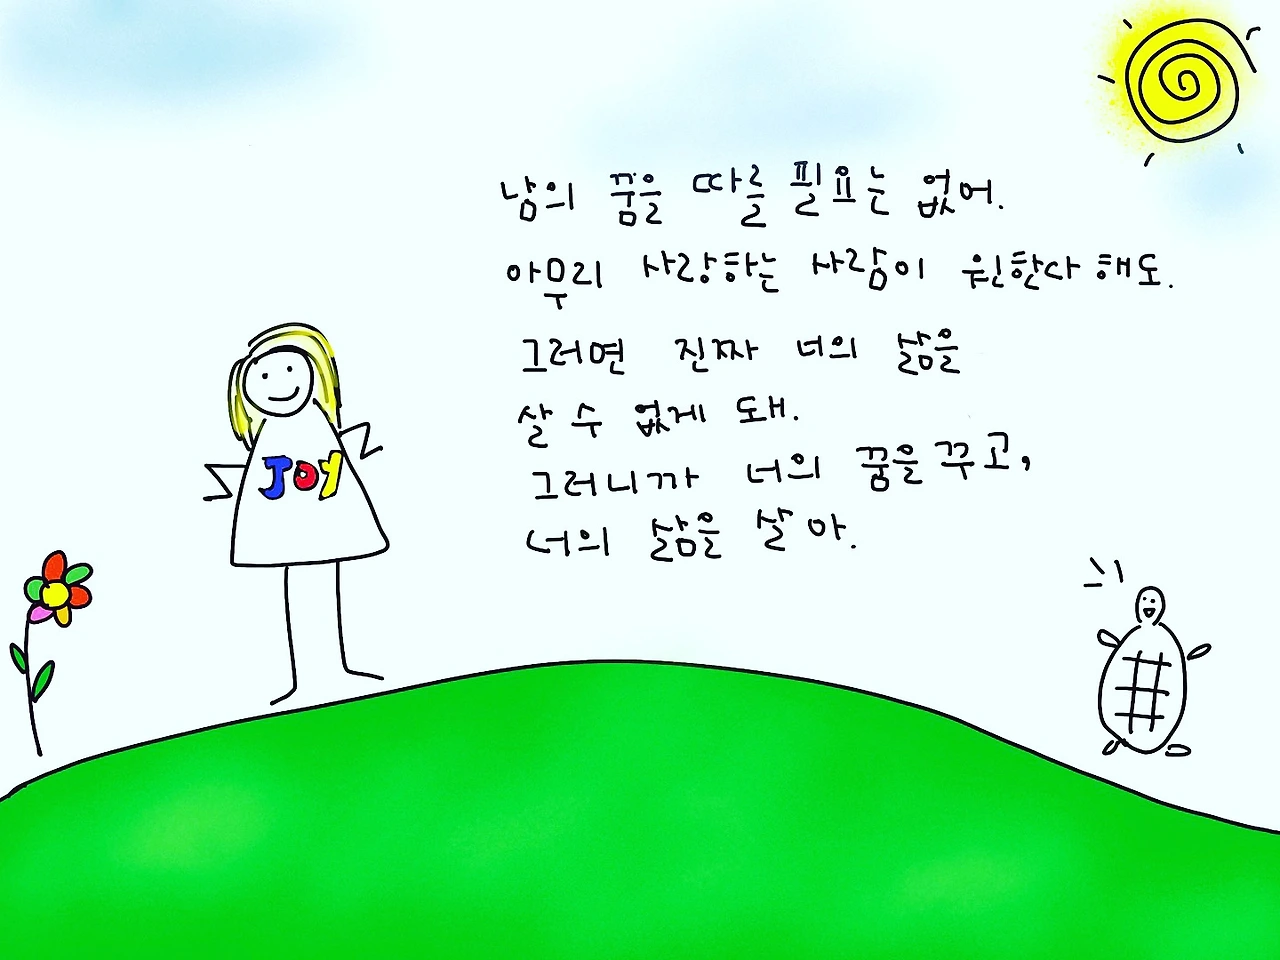 남의 꿈을 따를 필요는 없어.
아무리 사랑하는 사람이 원한다 해도.
그러면 진짜 너의 삶을
살 수 없게 돼.
그러니까 너의 꿈을 꾸고,
너의 삶을 살아.
JOY